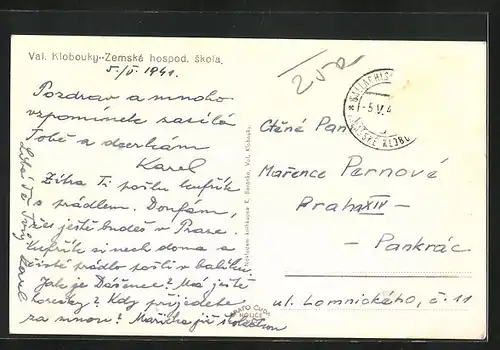 Val. Klobouky--Zemské hospod. škola.
5./V. 1941.
Pozdrav a mnoho
vzpomínek zasílá
Tobě a dcerkám
Karel
Zítra Ti pošlu kufřík
s prádlem. Doufám,
že ještě budeš v Praze.
Kufřík si nech doma a
čisté prádlo pošli v balíku.
Jak je Dášence? Má ještě
horečky? Kdy přijedete
za mnou? Mařicha již
Líbá Tě Tvůj Karel
Nákladem knihkupce Val. Klobouky
FOTO ČUDA
HOLICE
-5.V.4
Ctěné Paní
Mařence Pernové
Praha XIV
- Pankrác
ul. Lomnického, č. 11